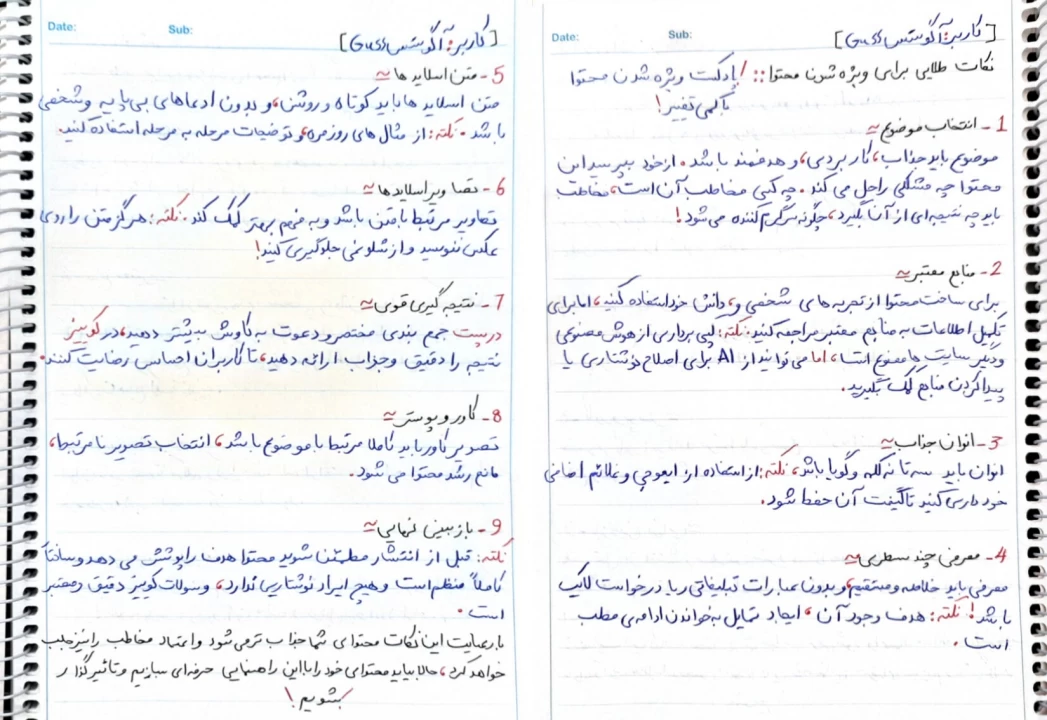 Date: Sub:
[کاربر:آگوستس Guss]
نکات طلایی برای ویژه شدن محتوا:: /پادکست ویژه شدن محتوا
با کمی تغییر!
1- انتخاب موضوع~
موضوع باید جذاب، کاربردی، و هدفمند باشد. از خود بپرسید این
محتوا چه مشکلی را حل می کند. چه کسی مخاطب آن است، مخاطب
باید چه نتیجه ای از آن بگیرد، چگونه سرگرم کننده می شود!
2- منابع معتبر~
برای ساخت محتوا از تجربه های شخصی و، دانش خود استفاده کنید، اما برای
تکمیل اطلاعات به منابع معتبر مراجعه کنید. نکته: کپی برداری از هوش مصنوعی
و دیگر سایت ها ممنوع است، اما می توانید از AI برای اصلاح نوشتاری یا
پیدا کردن منابع کمک بگیرید.
3- انوان جذاب~
انوان باید سه تا نه کلمه و گویا باشد، نکته: از استفاده از ایموجی و علائم اضافی
خودداری کنید تا کیفیت آن حفظ شود.
4- معرفی چند سطری~
معرفی باید خلاصه و مستقیم، و بدون عبارات تبلیغاتی ریا درخواست لایک
باشد! نکته: هدف وجود آن، ایجاد تمایل به خواندن ادامه ی مطلب
است.
Date: Sub:
[کاربر:آگوستس Guss]
5- متن اسلاید ها~
متن اسلاید ها باید کوتاه و روشن، و بدون ادعاهای بی پایه و شخصی
باشد. نکته: از مثال های روزمره، و توضیحات مرحله به مرحله استفاده کنید.
6- تصاویر اسلایدها~
تصاویر مرتبط با متن باشد و به فهم بهتر کمک کند. نکته: هرگز متن را روی
عکس ننویسید و از شلوغی جلوگیری کنید!
7- نتیجه گیری قوی~
در پست جمع بندی مختصر و دعوت به کاوش بیشتر دهید، در کوییز
نتیجه را دقیق و جذاب ارائه دهید، تا کاربران احساس رضایت کنند.
8- کاور و پوستر~
تصویر کاور باید کاملا مرتبط با موضوع باشد، انتخاب تصویر نا مرتبط،
مانع رشد محتوا می شود.
9- بازبینی نهایی~
نکته: قبل از انتشار مطمئن شوید محتوا هدف را پوشش می دهد و ساختار
کاملاً منظم است و هیچ ایراد نوشتاری ندارد، و سوالات کوییز دقیق و معتبر
است.
با رعایت این نکات محتوای شما جذاب تر می شود و اعتماد مخاطب را نیز جلب
خواهد کرد، حالا بیاید محتوای خود را با این راهنمایی حرفه ای سازیم و تاثیر گذار
بشویم!